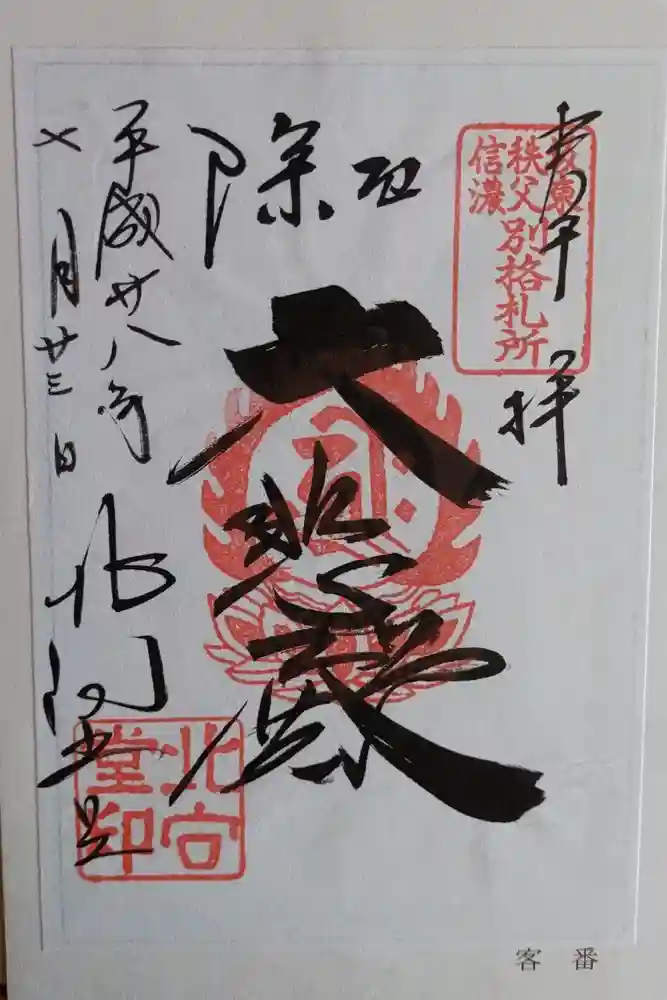 奉拝
坂東
秩父
信濃
別格札所
厄除
大悲殿
平成廿八年
七月廿三日
北向堂
北向堂印
客番